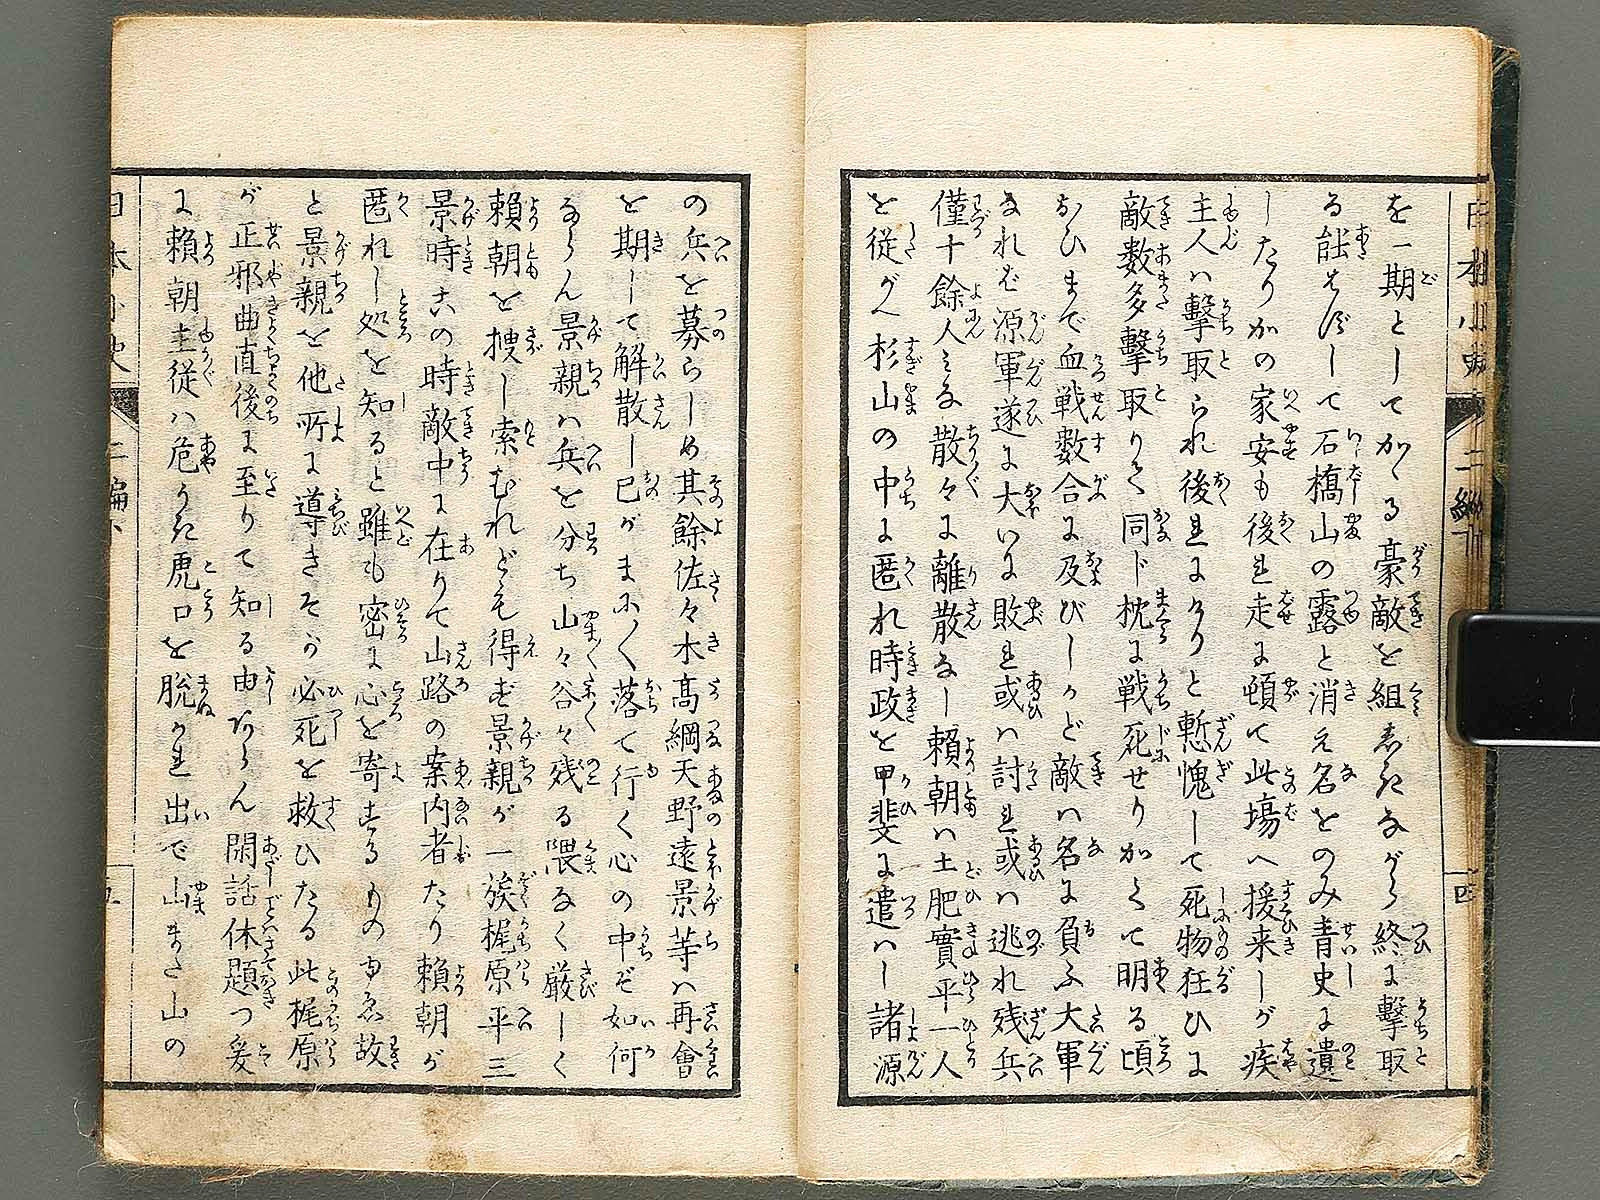 を一期としてかゝる豪敵を組しきながら終に撃取
る能はずして石橋山の露と消え名をのみ青史に遺
したりかの家安も後れ走に頓て此場へ援来しが疾
主人は撃取られ後れになりと慙愧して死物狂ひに
敵数多撃取りて同じ枕に戦死せりかくて明る頃
おひまで血戦数合に及びしかど敵は名に負ふ大軍
なれば源軍遂に大いに敗れ或は討れ或は逃れ残兵
僅十餘人みな散々に離散なし頼朝は土肥實平一人
を従がへ杉山の中に匿れ時政を甲斐に遣はし諸源
の兵を募らしめ其餘佐々木高綱天野遠景等は再會
を期して解散し己がまにく落て行く心の中ぞ如何
ならん景親は兵を分ち山々谷々残る隈なく厳しく
頼朝を捜し索むれども得ず景親が一族梶原平三
景時此の時敵中に在りて山路の案内者たり頼朝が
匿れし処を知ると雖も密に心を寄するものゆゑ故
と景親を他所に導きその必死を救ひたる此梶原
が正邪曲直後に至りて知る由あらん閑話休題つ爰
に頼朝主従は危うき虎口を脱かれ出で山また山の
日本小史
二編下
五
日本小史
二編下
四